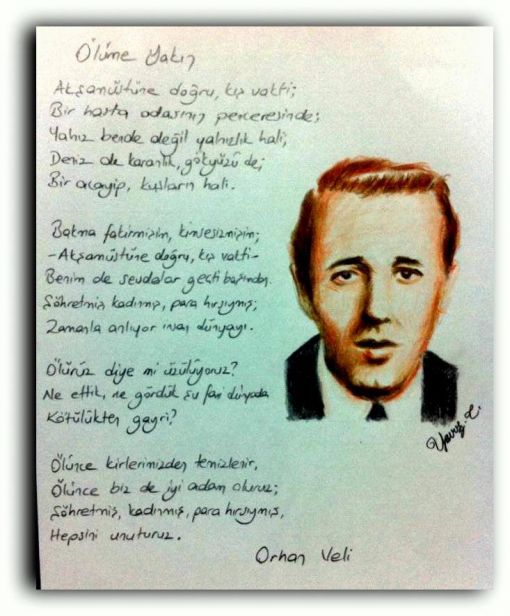 Ölüme Yakın
Akşamüstüne doğru, kış vakti;
Bir hasta odasının penceresinde;
Yalnız bende değil yalnızlık hali,
Deniz de karanlık, gökyüzü de;
Bir acayip, kuşların hali.
Bakma fakirmişim, kimsesizmişim;
-Akşamüstüne doğru, kış vakti-
Benim de sevdalar geçti başımdan.
Şöhretmiş, kadınmış, para hırsıymış;
Zamanla anlıyor insan dünyayı.
Ölürüz diye mi üzülüyoruz?
Ne ettik, ne gördük şu fani dünyada
Kötülükten gayri?
Ölünce kirlerimizden temizlenir,
Ölünce biz de iyi adam oluruz;
Şöhretmiş, kadınmış, para hırsıymış,
Hepsini unuturuz.
Orhan Veli